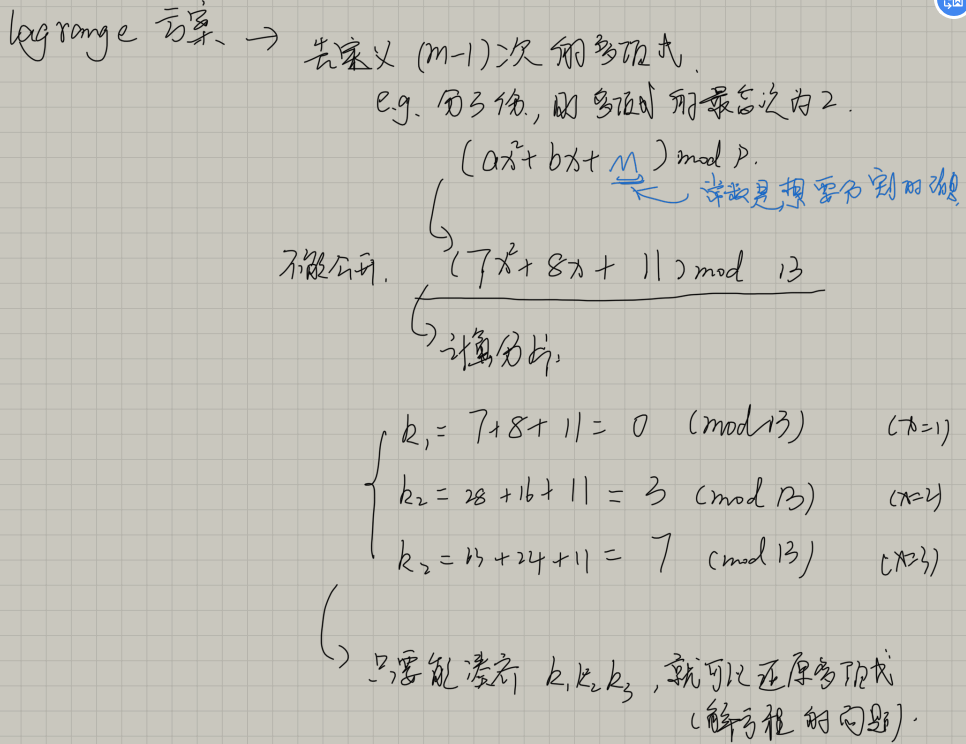 lagrange 方案 → 先定义 (m-1) 次的多项式.
e.g. 分3份, 则多项式的最高次为2.
(ax²+bx+M) mod P.
常数是想要分割的消息
不能公开. (7x²+8x+11) mod 13
计算分片:
k₁ = 7+8+11 = 0 (mod 13) (x=1)
k₂ = 28+16+11 = 3 (mod 13) (x=2)
k₂ = 63+24+11 = 7 (mod 13) (x=3)
只要能凑齐 k₁k₂k₃, 就可以还原多项式
(解方程的问题).